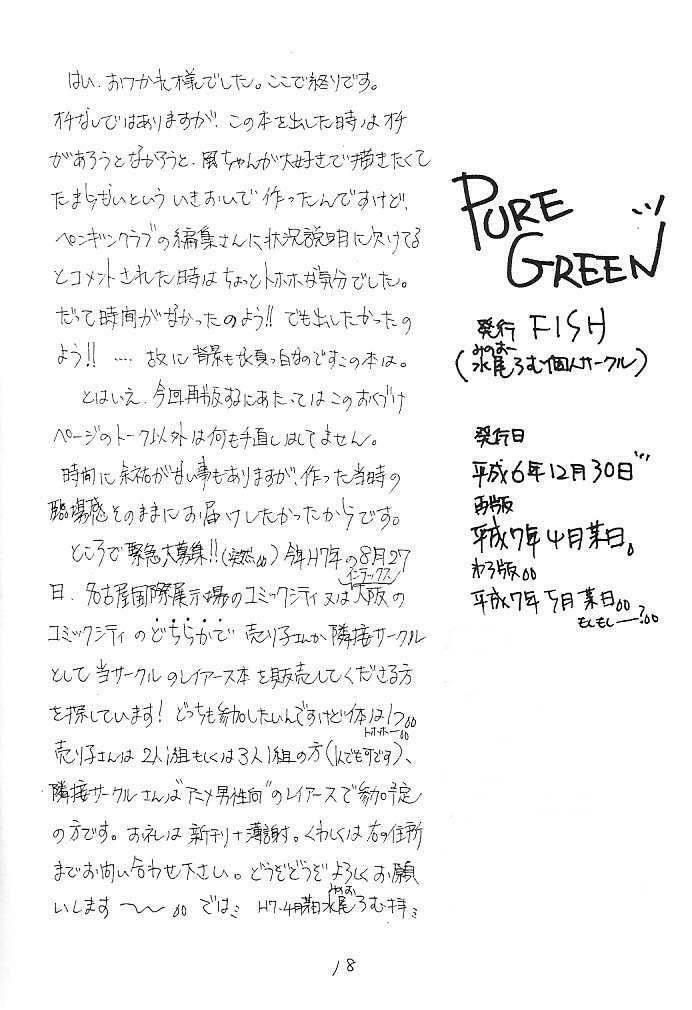 はい、おつかれ様でした。ここで終りです。
オチなしではありますが、この本を出した時はオチ
があろうとなかろうと、風ちゃんが大好きで描きたくて
たまらないという いきおいで 作ったんですけど、
ペンギンクラブの編集さんに状況説明に欠けてる
とコメントされた時はちょっとトホホな気分でした。
だって時間がなかったのよう!! でも出したかったの
よう!! …. 故に背景も真っ白なのですこの本は。
とはいえ、今回再販するにあたってはこのおくづけ
ページのトーク以外は何も手直しはしてません。
時間に余裕が甘い事もありますが、作った当時の
臨場感そのままにお届けしたかったからです。
ところで緊急大募集!!(突然。。) 今年H7年の8月27
インテックス
日、名古屋国際展示場のコミックシティ又は大阪の
コミックシティのどちらかで 売り子さんか隣接サークル
として当サークルのレイアース本を販売してくださる方
を探しています! どっちも参加したいんですけど体は1つ。。
トホホー。。
売り子さんは 2人1組もしくは3人1組の方(1人でも可です)、
隣接サークルさんは"アニメ男性向"のレイアースで参加予定
の方です。お礼は新刊+薄謝。くわしくは右の住所
までお問い合わせ下さい。どうぞどうぞよろしくお願
いします 〜〜 。。 では
みのお
H7.4月某日水尾ろむ拝
18
PURE
GREEN
発行 FISH
みのおー
(水尾ろむ個人サークル)
発行日
平成6年12月30日
再版
平成7年4月某日。
わろ版。。
平成7年5月某日。。
もしもしー?。。